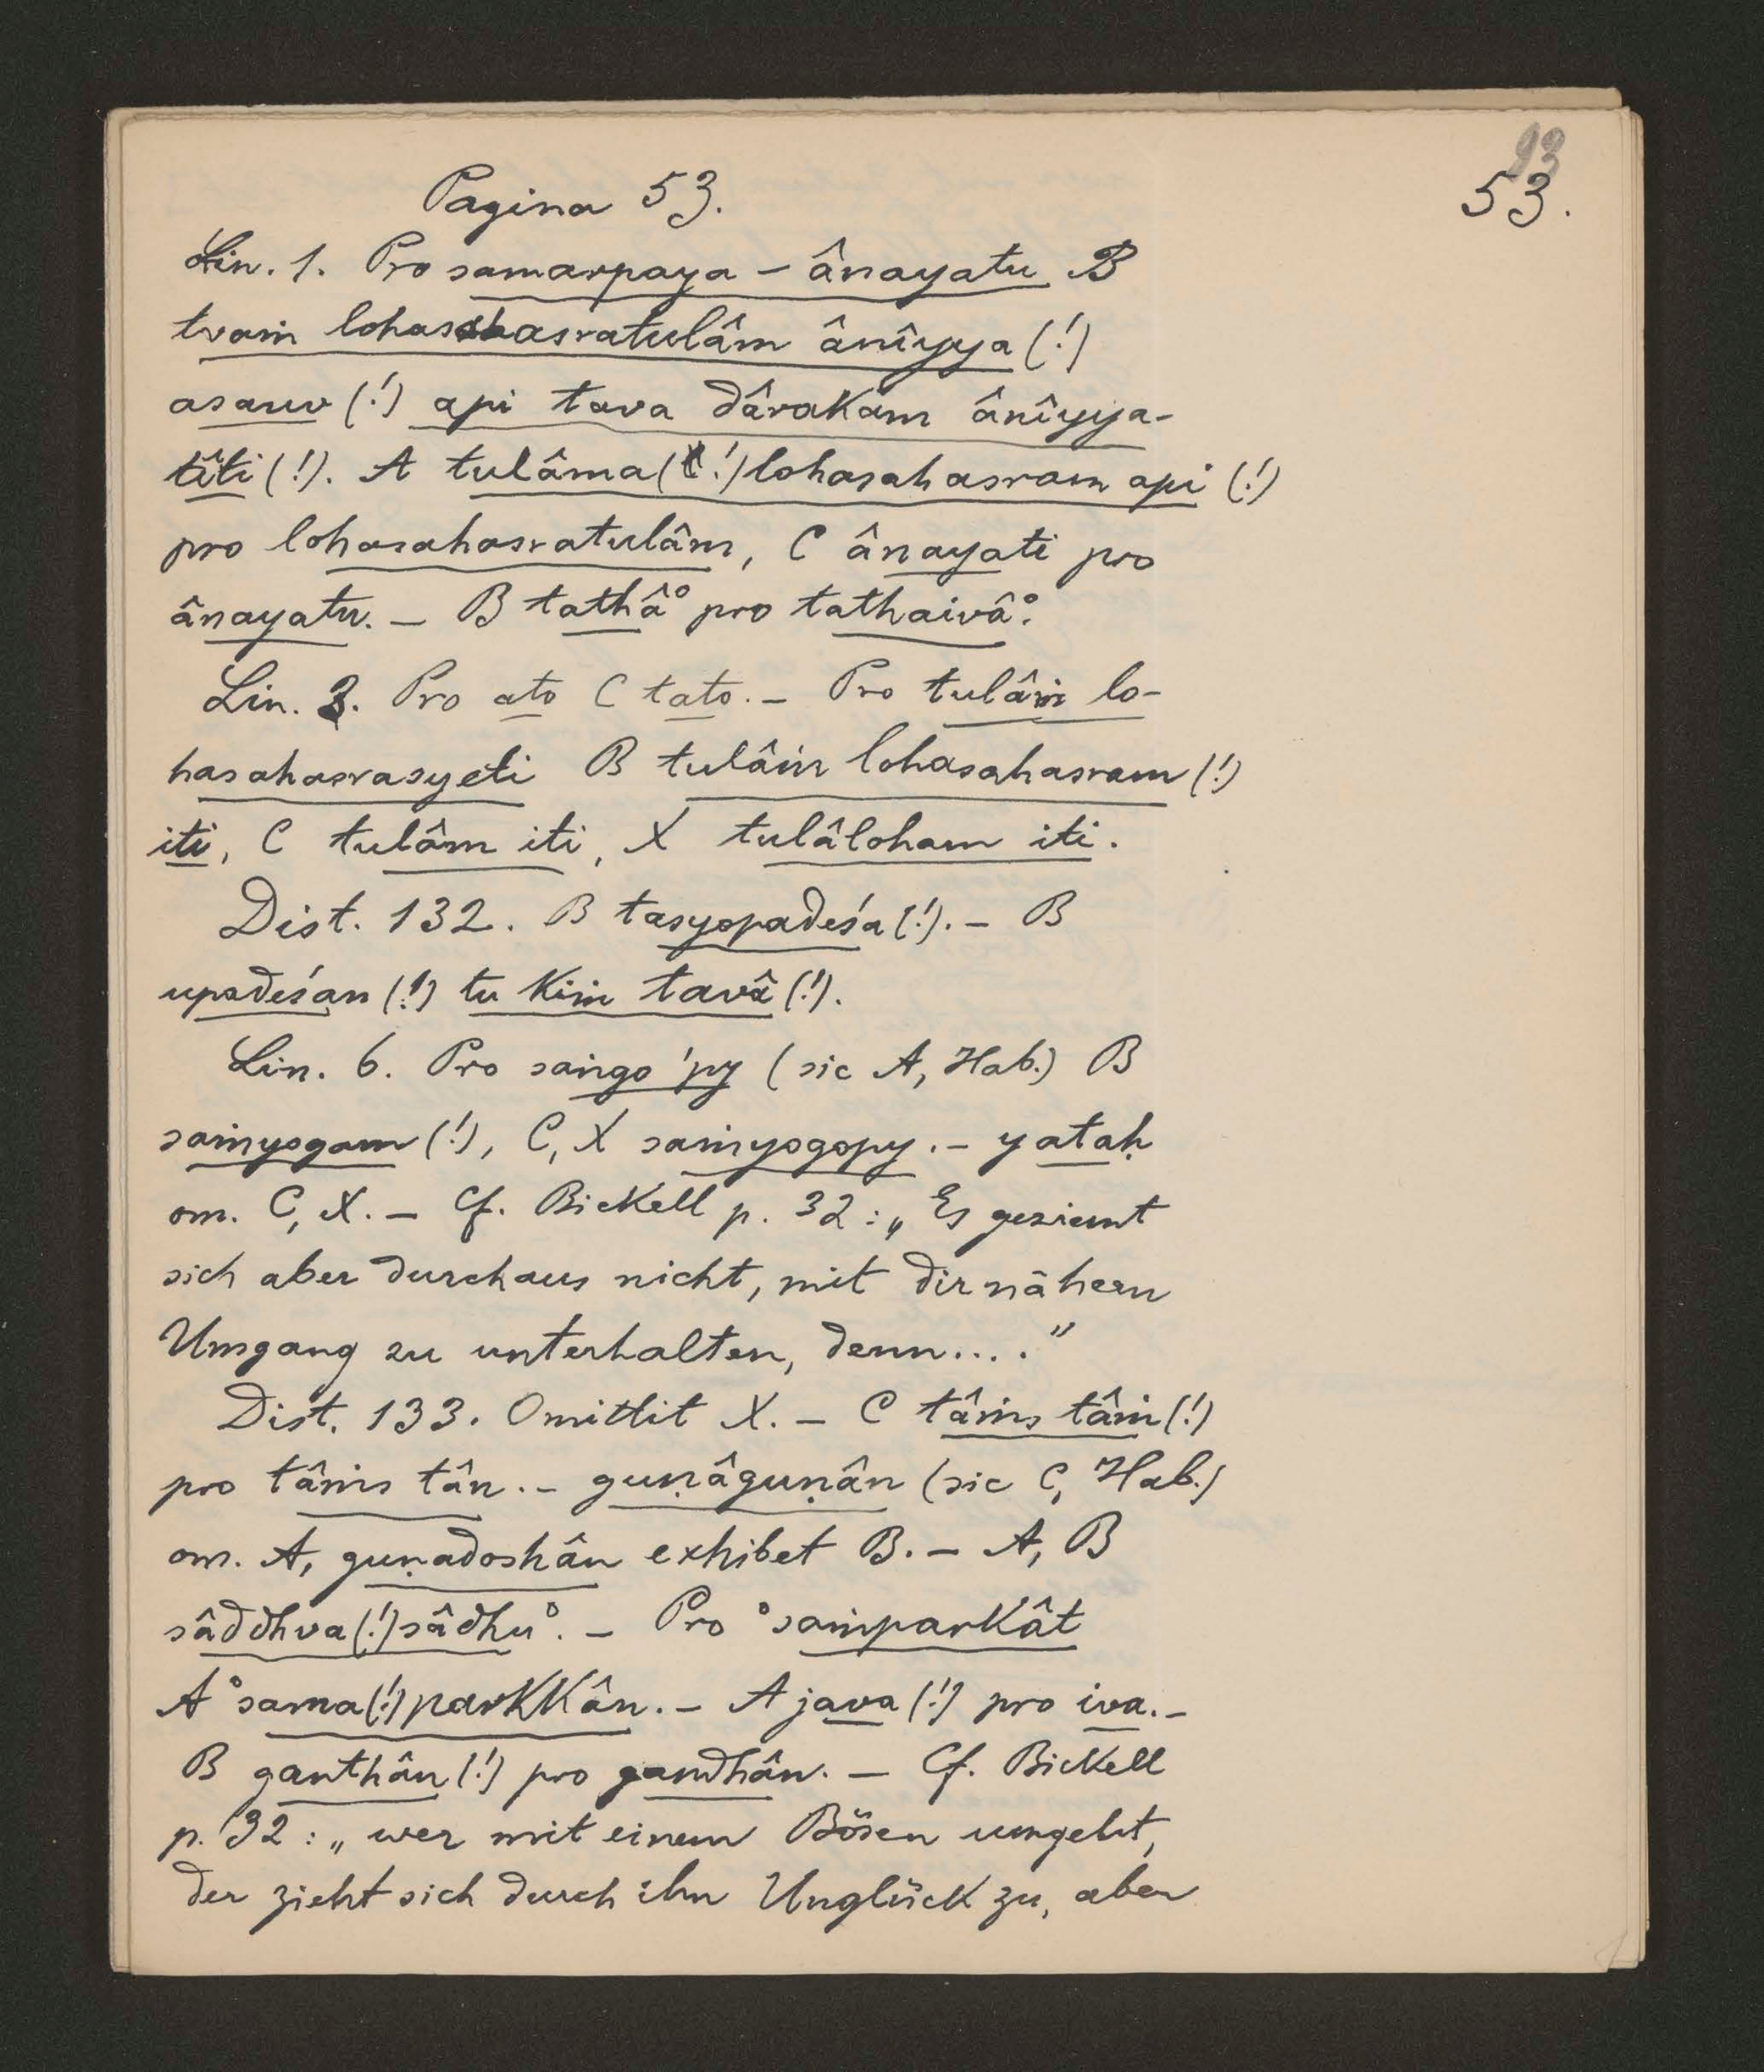 93
53.
Pagina 53.
Lin. 1. Pro samarpaya – ânayatu B
tvaṁ lohasahasratulâm ânîyya (!)
asauv (!) api tava dârakam ânîyya-
tîti (!). A tulâma (!) lohasahasram api (!)
pro lohasahasratulâm, C ânayati pro
ânayatu. – B tathâ° pro tathaivâ°.
Lin. 3. Pro ato C tato. – Pro tulâṁ lo-
hasahasrasyeti B tulâṁ lohasahasram (!)
iti, C tulâm iti, X tulâloham iti.
Dist. 132. B tasyopadeśa (!). – B
upadeśan (!) tu kiṁ tavâ (!).
Lin. 6. Pro saṅgo 'py (sic A, Hab.) B
saṁyogam (!), C, X saṁyogopy. – yataḥ
om. C, X. – Cf. Bickell p. 32: „Es geziemt
sich aber durchaus nicht, mit dir nähern
Umgang zu unterhalten, denn...."
Dist. 133. Omittit X. – C tâṁs tâṁ (!)
pro tâṁs tân. – guṇâguṇân (sic C, Hab.)
om. A, guṇadoshân exhibet B. – A, B
sâddhva (!) sâdhu°. – Pro °saṁparkât
A °sama (!) parkkân. – A java (!) pro iva. –
B ganthân (!) pro gandhân. – Cf. Bickell
p. 32: „wer mit einem Bösen umgeht,
der zieht sich durch ihn Unglück zu, aber